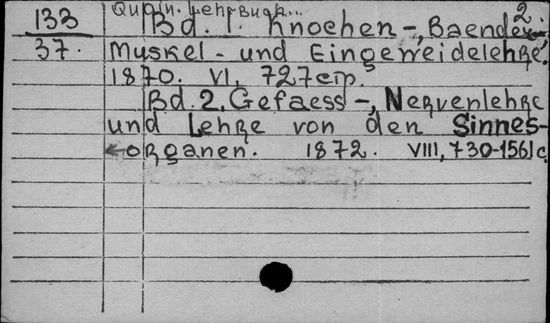 Quain. Lehrbuch... 2
133 Bd. 1. Knochen-, Baender-
37. Muskel- und Eingeweidelehre.
1870. VI, 727 стр.
Bd. 2. Gefaess-, Nervenlehre
und Lehre von den Sinnes-
organen. 1872. VIII, 730-1561 с